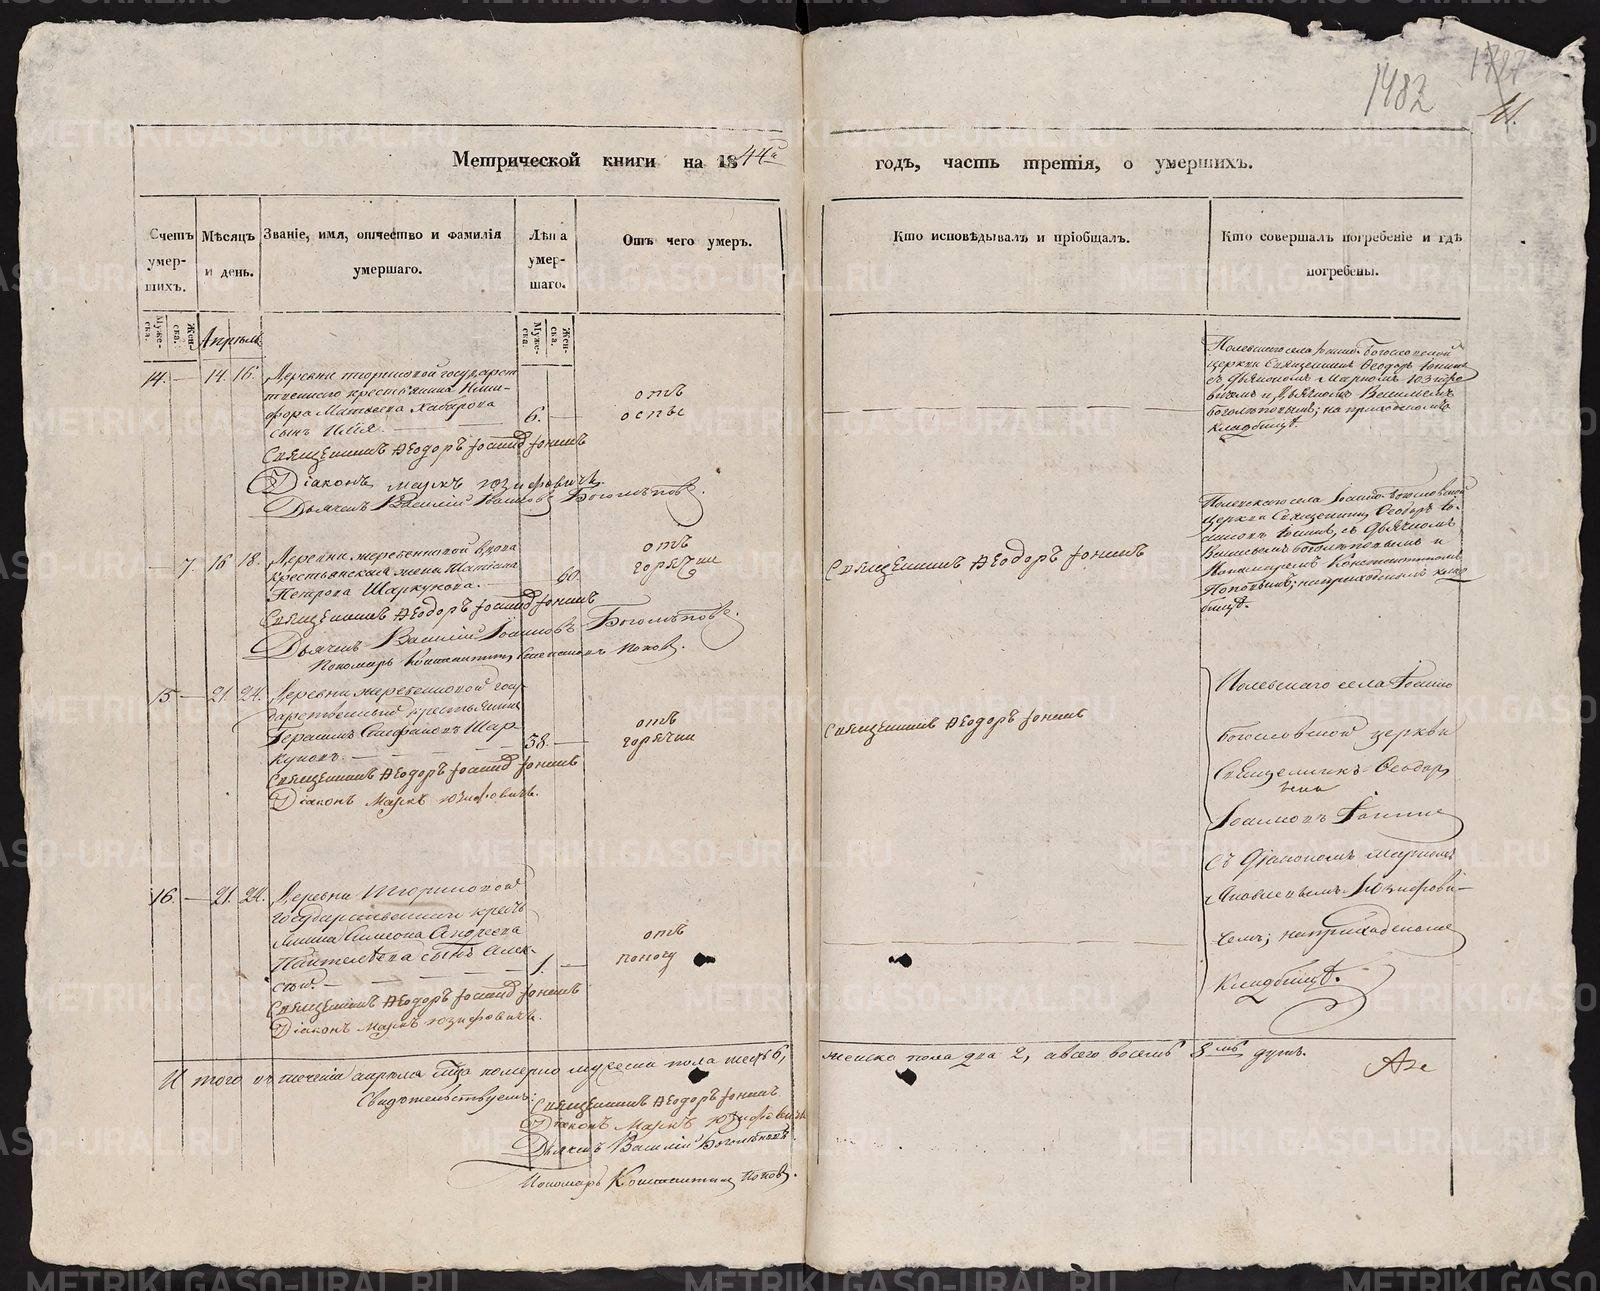 1482
41.
Метрической книги на 1844й годъ, часть третія, о умершихъ.
Счетъ умер-шихъ.
Мѣсяцъ и день.
Званіе, имя, отчество и фамилія умершаго.
Лѣта умер-шаго.
Отъ чего умеръ.
Кто исповѣдывалъ и пріобщалъ.
Кто совершалъ погребеніе и гдѣ погребены.
Муже-ска.
Жен-ска.
Апрѣль
Муже-ска.
Жен-ска.
14. — 14. 16.
Деревни государст
твеннаго крестьянина Ники-
фора Матвеева Хабарова
сынъ Илія.
6. —
отъ
оспы
Священникъ Ѳеодоръ Іоанновъ Іонинъ
Діаконъ Маркъ Юзифовичь.
Дьячекъ Василій Іоанновъ Боголѣповъ.
Полевскаго села Іоанно-Богословской
церкви Священникъ Ѳеодоръ Іонинъ
съ Діакономъ Маркомъ Юзифо
вичемъ и Дьячкомъ Васильемъ
Боголѣповымъ; на приходскомъ
кладбищѣ.
— 7. 16 18.
Деревни жеребенковой вдова
крестьянская жена Татіана
Петрова Шаркунова.
— 60.
отъ
горячки
Священникъ Ѳеодоръ Іоанновъ Іонинъ
Дьячекъ Василій Іоанновъ Боголѣповъ.
Пономарь Константинъ Поповъ.
Священникъ Ѳеодоръ Іонинъ
Полевскаго села Іоанно-Богословской
церкви Священникъ Ѳеодоръ Іо-
анновъ Іонинъ, съ Дьячкомъ
Васильемъ Боголѣповымъ и
Пономаремъ Константиномъ
Поповымъ; на приходскомъ клад
бищѣ.
15 — 21. 24.
Деревни жеребенковой госу-
дарственный крестьянинъ
Герасимъ Стефановъ Шар-
куновъ.
58. —
отъ
горячки
Священникъ Ѳеодоръ Іоанновъ Іонинъ
Діаконъ Маркъ Юзифовичь.
Священникъ Ѳеодоръ Іонинъ
Полевскаго села Іоанно
Богословской церкви
Священникъ Ѳеодоръ
Іоанновъ Іонинъ
съ Діакономъ Маркомъ
Яковлевымъ Юзифови-
чемъ; на приходскомъ
Кладбищѣ.
16. — 21. 24.
Деревни
государственнаго кресть
янина Симеона Андреева
Пантелѣева сынъ Алек-
сѣй.
1. —
отъ
поносу
Священникъ Ѳеодоръ Іоанновъ Іонинъ
Діаконъ Маркъ Юзифовичь.
Итого въ теченіи апрѣля мца померло мужеска пола шесть 6, женска пола два 2, а всего восемь 8мь душъ.
Свидѣтельствуемъ:
Священникъ Ѳеодоръ Іонинъ
Діаконъ Маркъ Юзифовичь
Дьячекъ Василій Боголѣповъ.
Пономарь Константинъ Поповъ.
METRIKI.GASO-URAL.RU